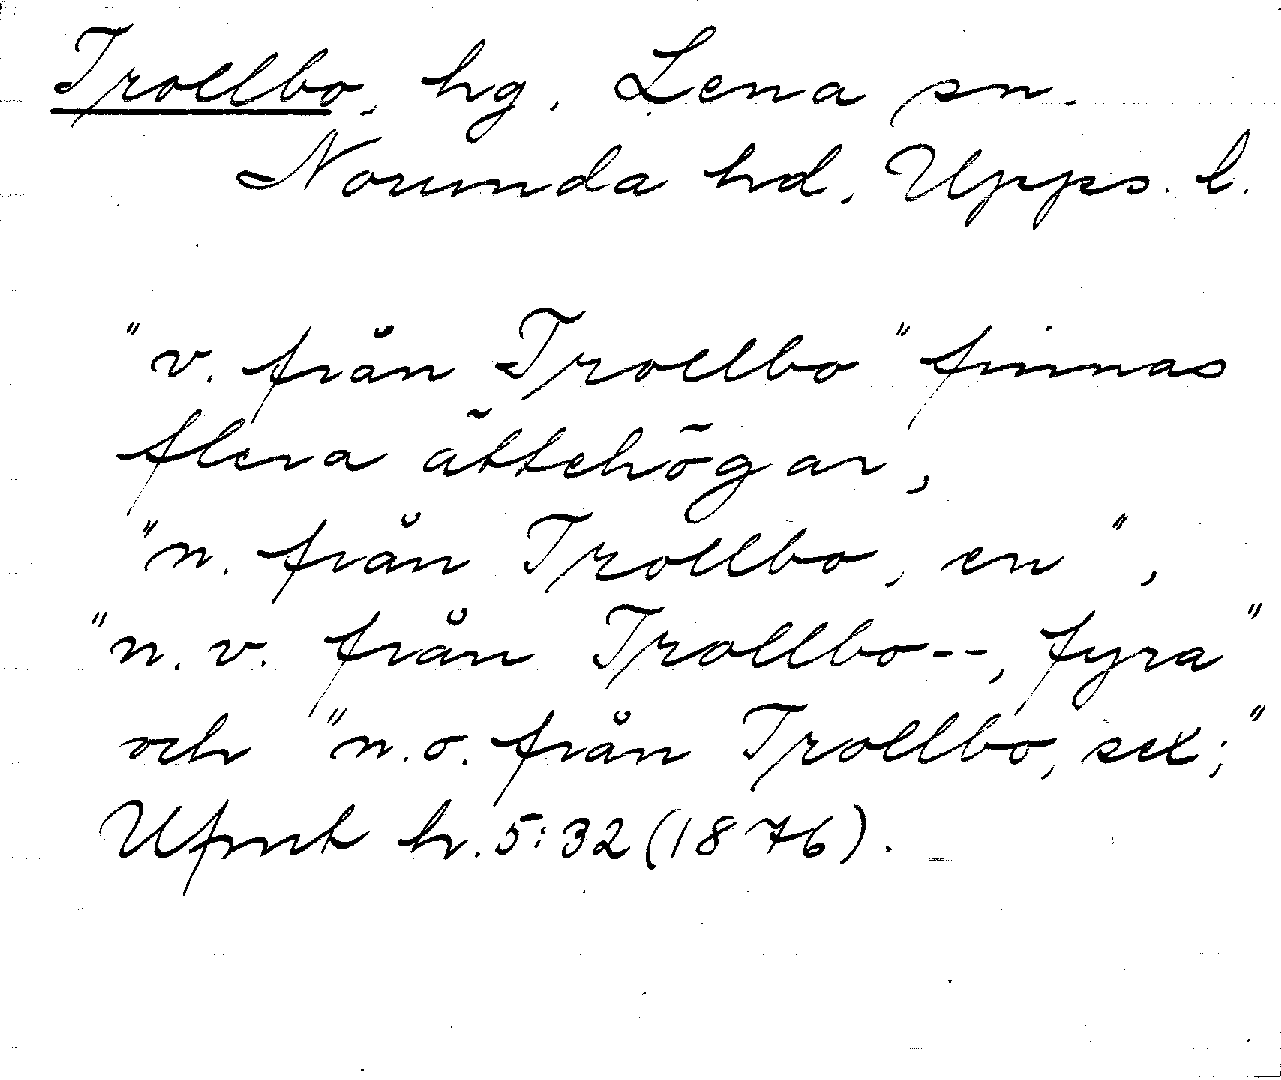 Trollbo, hg. Lena sn.
Norunda hd, Upps. l.
"v. från Trollbo" finnas
flera ättehögar,
"n. från Trollbo, en",
"n.v. från Trollbo--, fyra"
och "n.o. från Trollbo, sex;"
Ufmt h.5:32(1876).